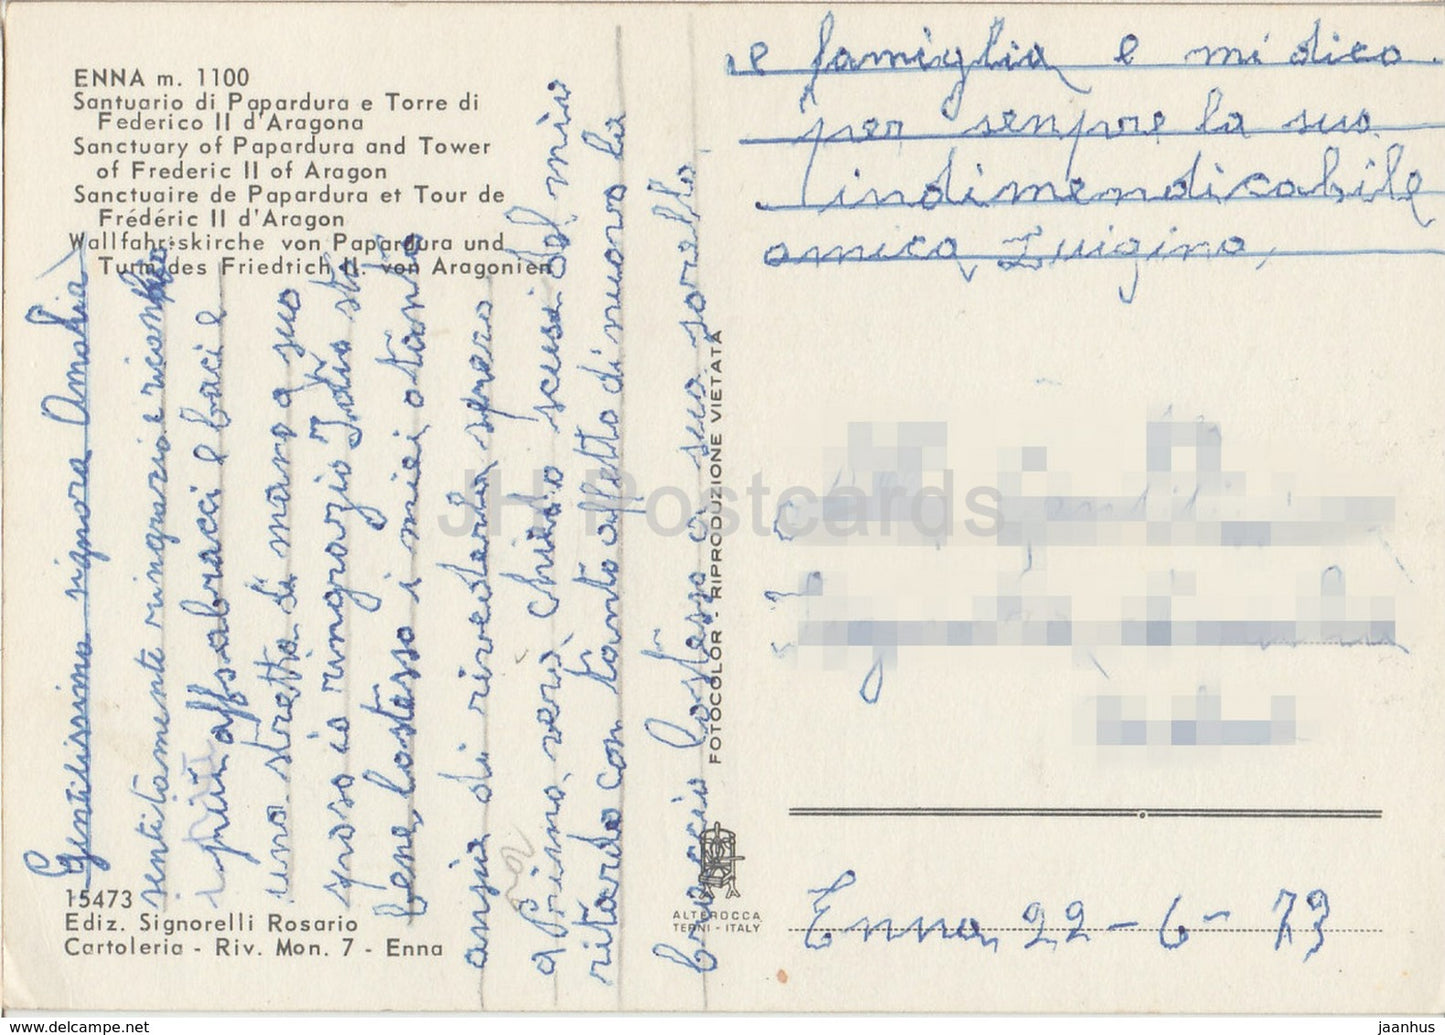 ENNA m. 1100
Santuario di Papardura e Torre di
Federico II d'Aragona
Sanctuary of Papardura and Tower
of Frederic II of Aragon
Sanctuaire de Papardura et Tour de
Frédéric II d'Aragon
Wallfahrtskirche von Papardura und
Turm des Friedtich II. von Aragonien
Gentilissima signora Amalia
sentitamente ringrazio e ricambio
i più affs abracci e baci e
una stretta di mano a suo
sposo io ringrazio Idio stò
bene, lostesso i miei o tanta
anzia di rivederla spero
a Prima verà, chiedo scusa del mio
ritardo con tanto affetto di nuovo la
braccio lostesso a sua sorella
e famiglia e mi dico
per senpre la sua
indimendicabile
amica Luigina,
FOTOCOLOR - RIPRODUZIONE VIETATA
JH Postcards
15473
Ediz. Signorelli Rosario
Cartoleria - Riv. Mon. 7 - Enna
ALTEROCCA
TERNI - ITALY
Enna, 22-6-73
www.delcampe.net
jaanhus